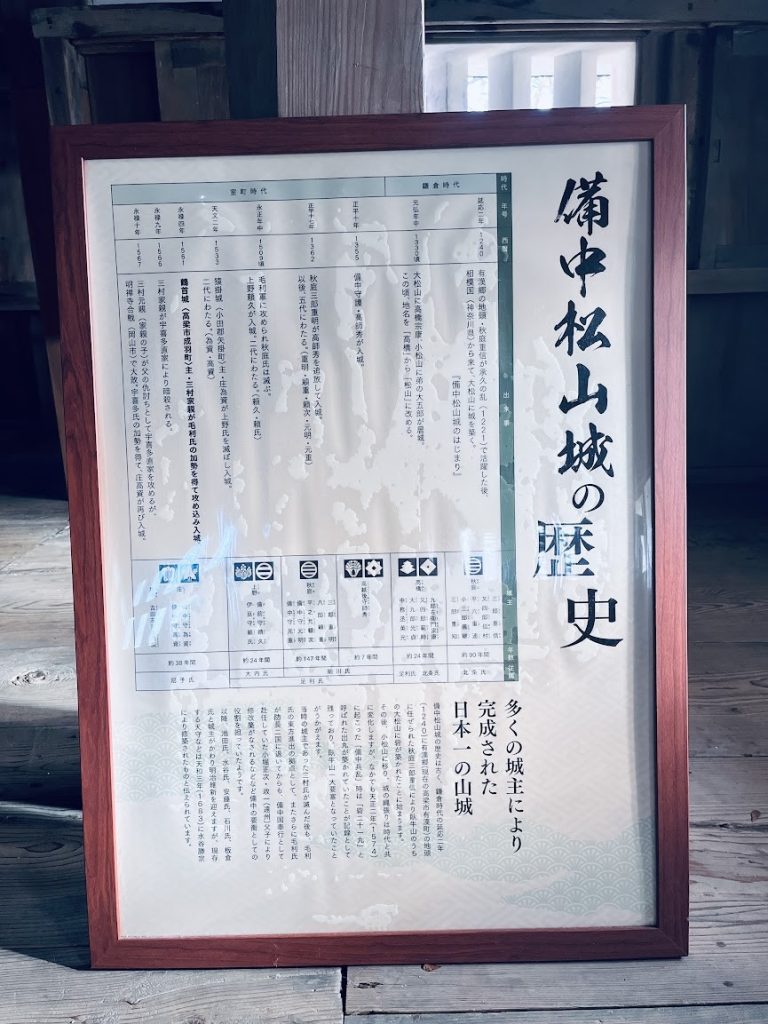 備中松山城の歴史
時代
年号
西暦
出来事
城主
年数
鎌倉時代
室町時代
延応二年
1240
有漢郷の地頭・秋庭重信が承久の乱(1221)で活躍した後、
相模国(神奈川県)から来て、大松山に城を築く。
『備中松山城のはじまり』
元弘年中
1330頃
大松山に高橋宗康、小松山に弟の大五郎が居城。
この頃、地名を「高橋」から「松山」に改める。
正平十年
1355
備中守護・高師秀が入城。
正平十七年
1362
秋庭三郎重明が高師秀を追放して入城。
以後、五代にわたる。(重明・頼重・頼次・元明・元重)
永正年中
1509頃
毛利軍に攻められ秋庭氏は滅ぶ。
上野頼久が入城、二代にわたる。(頼久・頼氏)
天文二年
1533
猿掛城(小田郡矢掛町)主・庄為資が上野氏を滅ぼし入城。
二代にわたる。(為資・高資)
永禄四年
1561
鶴首城(高梁市成羽町)主・三村家親が毛利氏の加勢を得て攻め込み入城
永禄九年
1566
三村家親が宇喜多直家により暗殺される。
永禄十年
1567
三村元親(家親の子)が父の仇討ちとして宇喜多直家を攻めるが、
明禅寺合戦(岡山市)で大敗。宇喜多氏の加勢を得て、庄高資が再び入城。
秋庭
高橋
秋庭
上野
庄
約90年間
約24年間
約7年間
約147年間
約24年間
約38年間
北条氏
足利氏
北条氏
細川氏
足利氏
大内氏
尼子氏
多くの城主により
完成された
日本一の山城
備中松山城の歴史は古く、鎌倉時代の延応二年
(1240)に有漢郷(現在の高梁市有漢町)の地頭
に任ぜられた秋庭三郎重信により臥牛山のうち
の大松山に砦が築かれたことに始まります。
その後、小松山に移り、城の縄張りは時代と共
に変化しますが、なかでも天正二年(1574)
に起こった「備中兵乱」時は「砦二十一丸」と
呼ばれた出丸が築かれていたことが記録として
残っており、臥牛山一大要塞となっていたこと
がうかがえます。
当時の城主であった三村氏が滅んだ後も、毛利
氏の東方進出の拠点として、またさらに毛利氏
が防長二国に退いてからも、備中国奉行として
赴任していた小堀正次・政一(遠州)父子により
修改築がなされるなどなど備中の要衝としての
役割を担っていたようです。
以降、池田氏、水谷氏、安藤氏、石川氏、板倉
氏と城主がかわり明治維新を迎えますが、現存
する天守などは天和三年(1683)に水谷勝宗
により修築されたものと伝えられています。